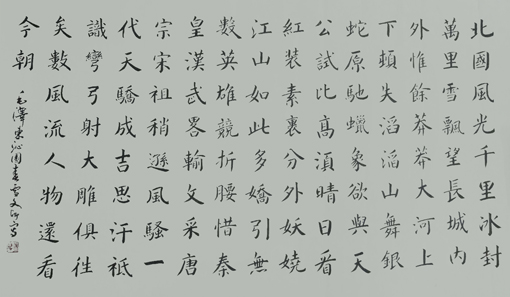 北國風光千里冰封
萬里雪飄望長城內
外惟餘莽莽大河上
下頓失滔滔山舞銀
蛇原馳蠟象欲與天
公試比高湏晴日看
紅裝素裹分外妖嬈
江山如此多嬌引無
數英雄競折腰惜秦
皇漢武畧輸文采唐
宗宋祖稍遜風騷一
代天驕成吉思汗祗
識彎弓射大雕俱徃
矣數風流人物還看
今朝
毛澤東沁園春雪